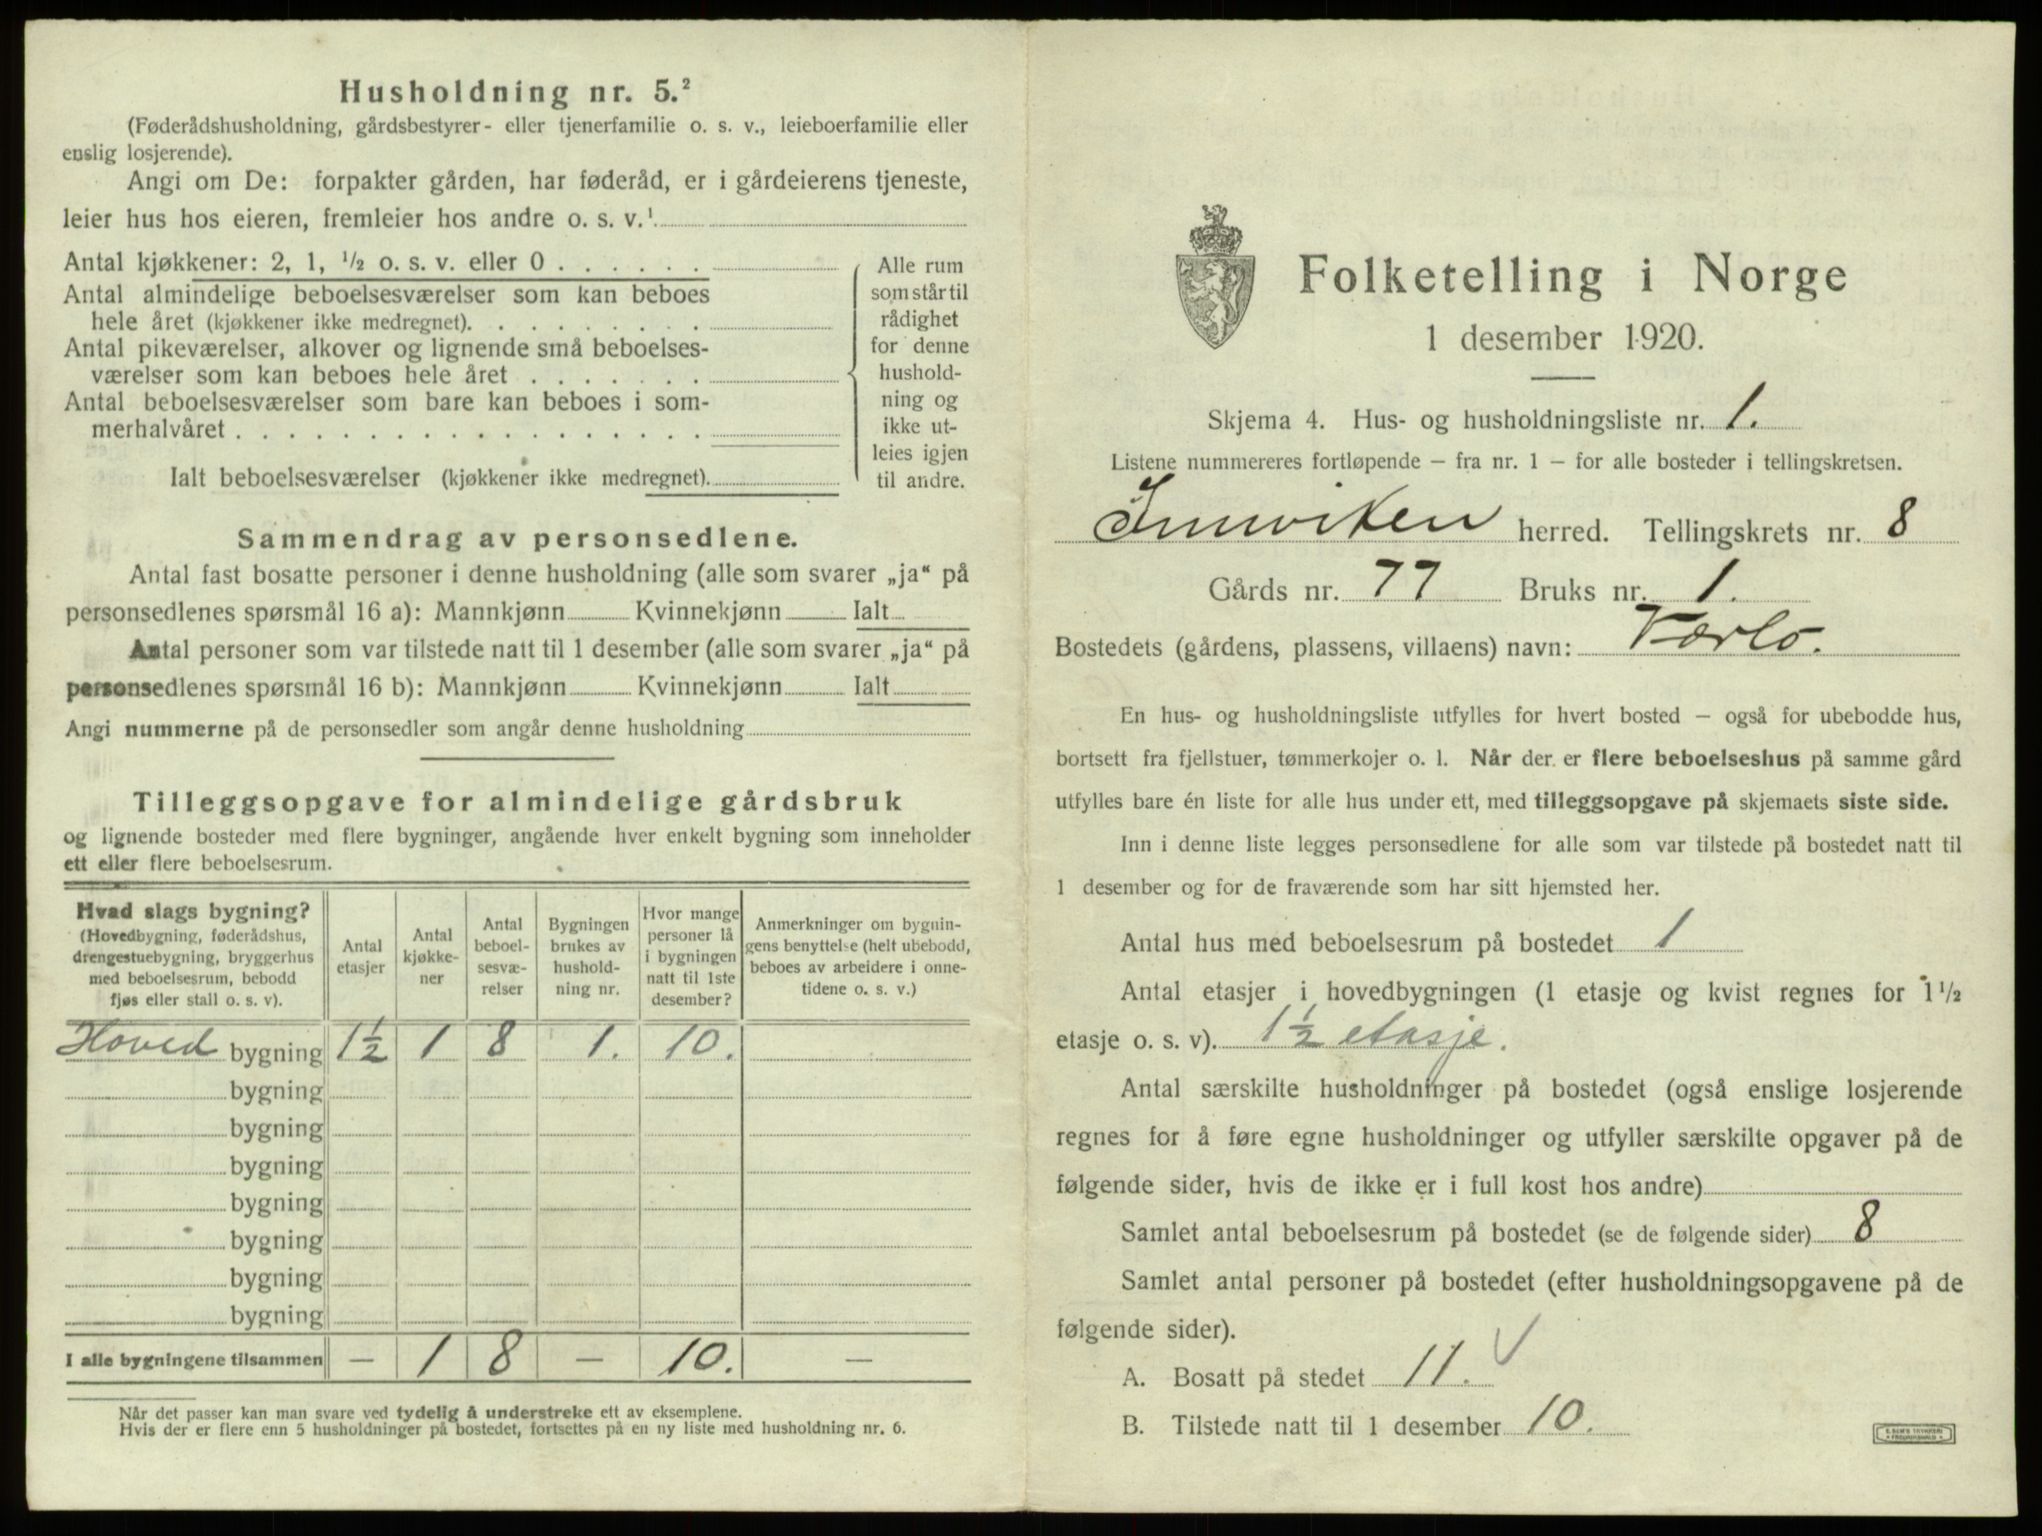 Husholdning nr. 5.²
(Føderådshusholdning, gårdsbestyrer- eller tjenerfamilie o. s. v., leieboerfamilie eller
enslig losjerende).
Angi om De: forpakter gården, har føderåd, er i gårdeierens tjeneste,
leier hus hos eieren, fremleier hos andre o. s. v.¹
Antal kjøkkener: 2, 1, ½ o. s. v. eller 0 . . . . . .
Antal almindelige beboelsesværelser som kan beboes
hele året (kjøkkener ikke medregnet). . . . . . . . .
Antal pikeværelser, alkover og lignende små beboelses-
værelser som kan beboes hele året . . . . . . .
Antal beboelsesværelser som bare kan beboes i som-
merhalvåret . . . . . . . . . . . . . . . . . .
Ialt beboelsesværelser (kjøkkener ikke medregnet).
Alle rum
som står til
rådighet
for denne
hushold-
ning og
ikke ut-
leies igjen
til andre.
Sammendrag av personsedlene.
Antal fast bosatte personer i denne husholdning (alle som svarer „ja“ på
personsedlenes spørsmål 16 a): Mannkjønn Kvinnekjønn Ialt
Antal personer som var tilstede natt til 1 desember (alle som svarer „ja“ på
personsedlenes spørsmål 16 b): Mannkjønn Kvinnekjønn Ialt
Angi nummerne på de personsedler som angår denne husholdning
Tilleggsopgave for almindelige gårdsbruk
og lignende bosteder med flere bygninger, angående hver enkelt bygning som inneholder
ett eller flere beboelsesrum.
Hvad slags bygning?
(Hovedbygning, føderådshus,
drengestuebygning, bryggerhus
med beboelsesrum, bebodd
fjøs eller stall o. s. v).
Antal
etasjer
Antal
kjøkke-
ner
Antal
beboel-
sesvæ-
relser
Bygningen
brukes av
hushold-
ning nr.
Hvor mange
personer lå
i bygningen
natt til 1ste
desember?
Anmerkninger om bygnin-
gens benyttelse (helt ubebodd,
beboes av arbeidere i onne-
tidene o. s. v.)
Hoved bygning 1½ 1 8 1. 10.
bygning
bygning
bygning
bygning
bygning
bygning
bygning
I alle bygningene tilsammen — 1 8 — 10. —
Når det passer kan man svare ved tydelig å understreke ett av eksemplene.
Hvis der er flere enn 5 husholdninger på bostedet, fortsettes på en ny liste med husholdning nr. 6.
Folketelling i Norge
1 desember 1920.
Skjema 4. Hus- og husholdningsliste nr. 1.
Listene nummereres fortløpende – fra nr. 1 – for alle bosteder i tellingskretsen.
Innviken herred. Tellingskrets nr. 8
Gårds nr. 77 Bruks nr. 1.
Bostedets (gårdens, plassens, villaens) navn: Værlo.
En hus- og husholdningsliste utfylles for hvert bosted – også for ubebodde hus,
bortsett fra fjellstuer, tømmerkojer o. l. Når der er flere beboelseshus på samme gård
utfylles bare én liste for alle hus under ett, med tilleggsopgave på skjemaets siste side.
Inn i denne liste legges personsedlene for alle som var tilstede på bostedet natt til
1 desember og for de fraværende som har sitt hjemsted her.
Antal hus med beboelsesrum på bostedet 1
Antal etasjer i hovedbygningen (1 etasje og kvist regnes for 1½
etasje o. s. v). 1½ etasje.
Antal særskilte husholdninger på bostedet (også enslige losjerende
regnes for å føre egne husholdninger og utfyller særskilte opgaver på de
følgende sider, hvis de ikke er i full kost hos andre)
Samlet antal beboelsesrum på bostedet (se de følgende sider) 8
Samlet antal personer på bostedet (efter husholdningsopgavene på de
følgende sider).
A. Bosatt på stedet 11. √
B. Tilstede natt til 1 desember 10.